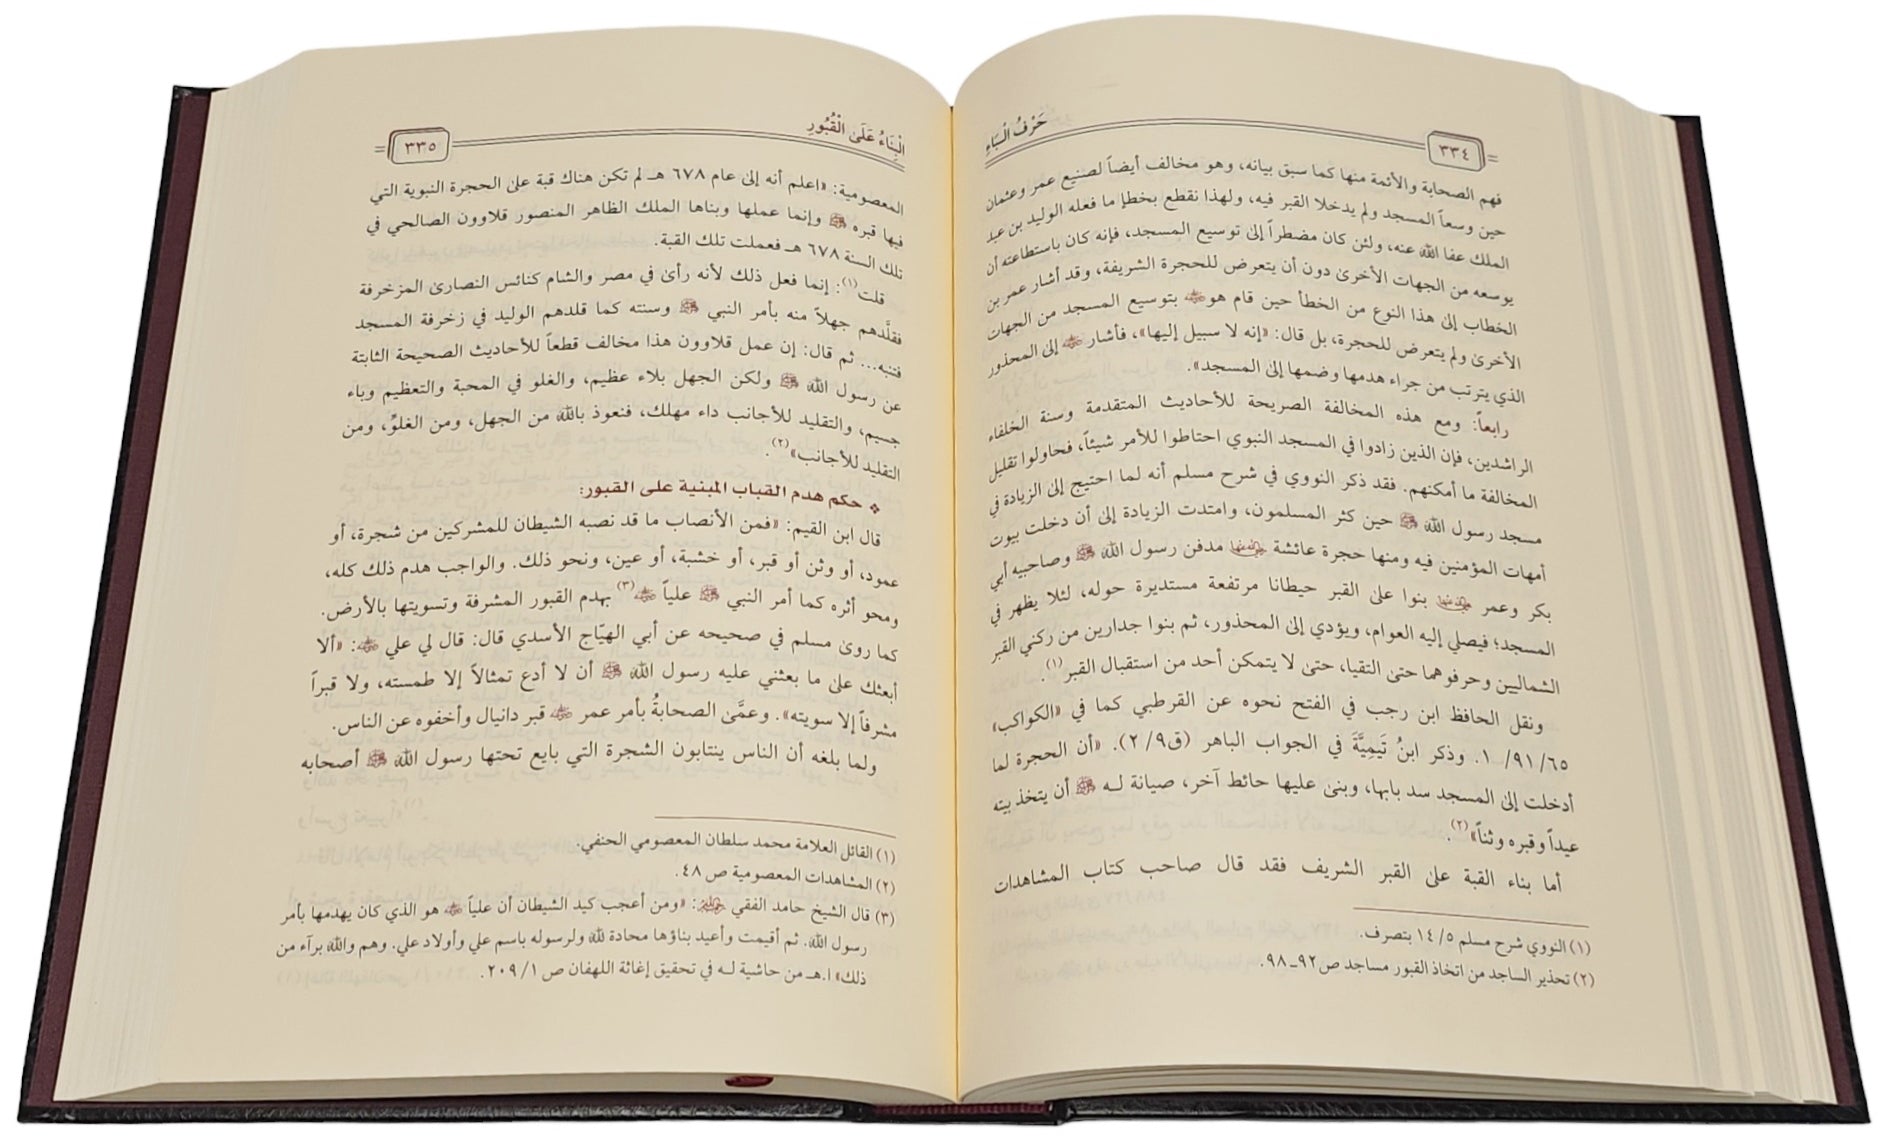 حَرْفُ الْبَاءِ
٣٣٤
فهم الصحابة والأئمة منها كما سبق بيانه، وهو مخالف أيضاً لصنيع عمر وعثمان
حين وسعا المسجد ولم يدخلا القبر فيه، ولهذا نقطع بخطإ ما فعله الوليد بن عبد
الملك عفا الله عنه، ولئن كان مضطراً إلى توسيع المسجد، فإنه كان باستطاعته أن
يوسعه من الجهات الأخرى دون أن يتعرض للحجرة الشريفة، وقد أشار عمر بن
الخطاب إلى هذا النوع من الخطأ حين قام هو رضي الله عنه بتوسيع المسجد من الجهات
الأخرى ولم يتعرض للحجرة، بل قال: «إنه لا سبيل إليها»، فأشار رضي الله عنه إلى المحذور
الذي يترتب من جراء هدمها وضمها إلى المسجد».
رابعاً: ومع هذه المخالفة الصريحة للأحاديث المتقدمة وسنة الخلفاء
الراشدين، فإن الذين زادوا في المسجد النبوي احتاطوا للأمر شيئاً، فحاولوا تقليل
المخالفة ما أمكنهم. فقد ذكر النووي في شرح مسلم أنه لما احتيج إلى الزيادة في
مسجد رسول الله ﷺ حين كثر المسلمون، وامتدت الزيادة إلى أن دخلت بيوت
أمهات المؤمنين فيه ومنها حجرة عائشة رضي الله عنها مدفن رسول الله ﷺ وصاحبيه أبي
بكر وعمر رضي الله عنهما بنوا على القبر حيطانا مرتفعة مستديرة حوله، لئلا يظهر في
المسجد؛ فيصلي إليه العوام، ويؤدي إلى المحذور، ثم بنوا جدارين من ركني القبر
الشماليين وحرفوهما حتى التقيا، حتى لا يتمكن أحد من استقبال القبر(١).
ونقل الحافظ ابن رجب في الفتح نحوه عن القرطبي كما في «الكواكب»
٦٥/ ٩١/ ١. وذكر ابنُ تَيمِيَّةَ في الجواب الباهر (ق٩/ ٢). «أن الحجرة لما
أدخلت إلى المسجد سد بابها، وبنى عليها حائط آخر، صيانة لـه ﷺ أن يتخذ بيته
عيداً وقبره وثناً»(٢).
أما بناء القبة على القبر الشريف فقد قال صاحب كتاب المشاهدات
(١) النووي شرح مسلم ٥/ ١٤ بتصرف.
(٢) تحذير الساجد من اتخاذ القبور مساجد ص٩٢ـ ٩٨.
الْبِنَاءُ عَلَى الْقُبُورِ
٣٣٥
المعصومية: «اعلم أنه إلى عام ٦٧٨ هـ لم تكن هناك قبة على الحجرة النبوية التي
فيها قبره ﷺ وإنما عملها وبناها الملك الظاهر المنصور قلاوون الصالحي في
تلك السنة ٦٧٨ هـ فعملت تلك القبة.
قلت(١): إنما فعل ذلك لأنه رأى في مصر والشام كنائس النصارى المزخرفة
فقلَّدهم جهلاً منه بأمر النبي ﷺ وسنته كما قلدهم الوليد في زخرفة المسجد
فتنبه... ثم قال: إن عمل قلاوون هذا مخالف قطعاً للأحاديث الصحيحة الثابتة
عن رسول الله ﷺ ولكن الجهل بلاء عظيم، والغلو في المحبة والتعظيم وباء
جسيم، والتقليد للأجانب داء مهلك، فنعوذ بالله من الجهل، ومن الغلوِّ، ومن
التقليد للأجانب»(٢).
❖ حكم هدم القباب المبنية على القبور:
قال ابن القيم: «فمن الأنصاب ما قد نصبه الشيطان للمشركين من شجرة، أو
عمود، أو وثن أو قبر، أو خشبة، أو عين، ونحو ذلك. والواجب هدم ذلك كله،
ومحو أثره كما أمر النبي ﷺ علياً رضي الله عنه(٣) بهدم القبور المشرفة وتسويتها بالأرض.
كما روى مسلم في صحيحه عن أبي الهيّاج الأسدي قال: قال لي علي رضي الله عنه: «ألا
أبعثك على ما بعثني عليه رسول الله ﷺ أن لا أدع تمثالاً إلا طمسته، ولا قبراً
مشرفاً إلا سويته». وعمَّى الصحابةُ بأمر عمر رضي الله عنه قبر دانيال وأخفوه عن الناس.
ولما بلغه أن الناس ينتابون الشجرة التي بايع تحتها رسول الله ﷺ أصحابه
(١) القائل العلامة محمد سلطان المعصومي الحنفي.
(٢) المشاهدات المعصومية ص ٤٨.
(٣) قال الشيخ حامد الفقي رحمه الله: «ومن أعجب كيد الشيطان أن علياً رضي الله عنه هو الذي كان يهدمها بأمر
رسول الله. ثم أقيمت وأعيد بناؤها محادة لله ولرسوله باسم علي وأولاد علي. وهم والله برآء من
ذلك» ا.هـ من حاشية لـه في تحقيق إغاثة اللهفان ص ١/ ٢٠٩.